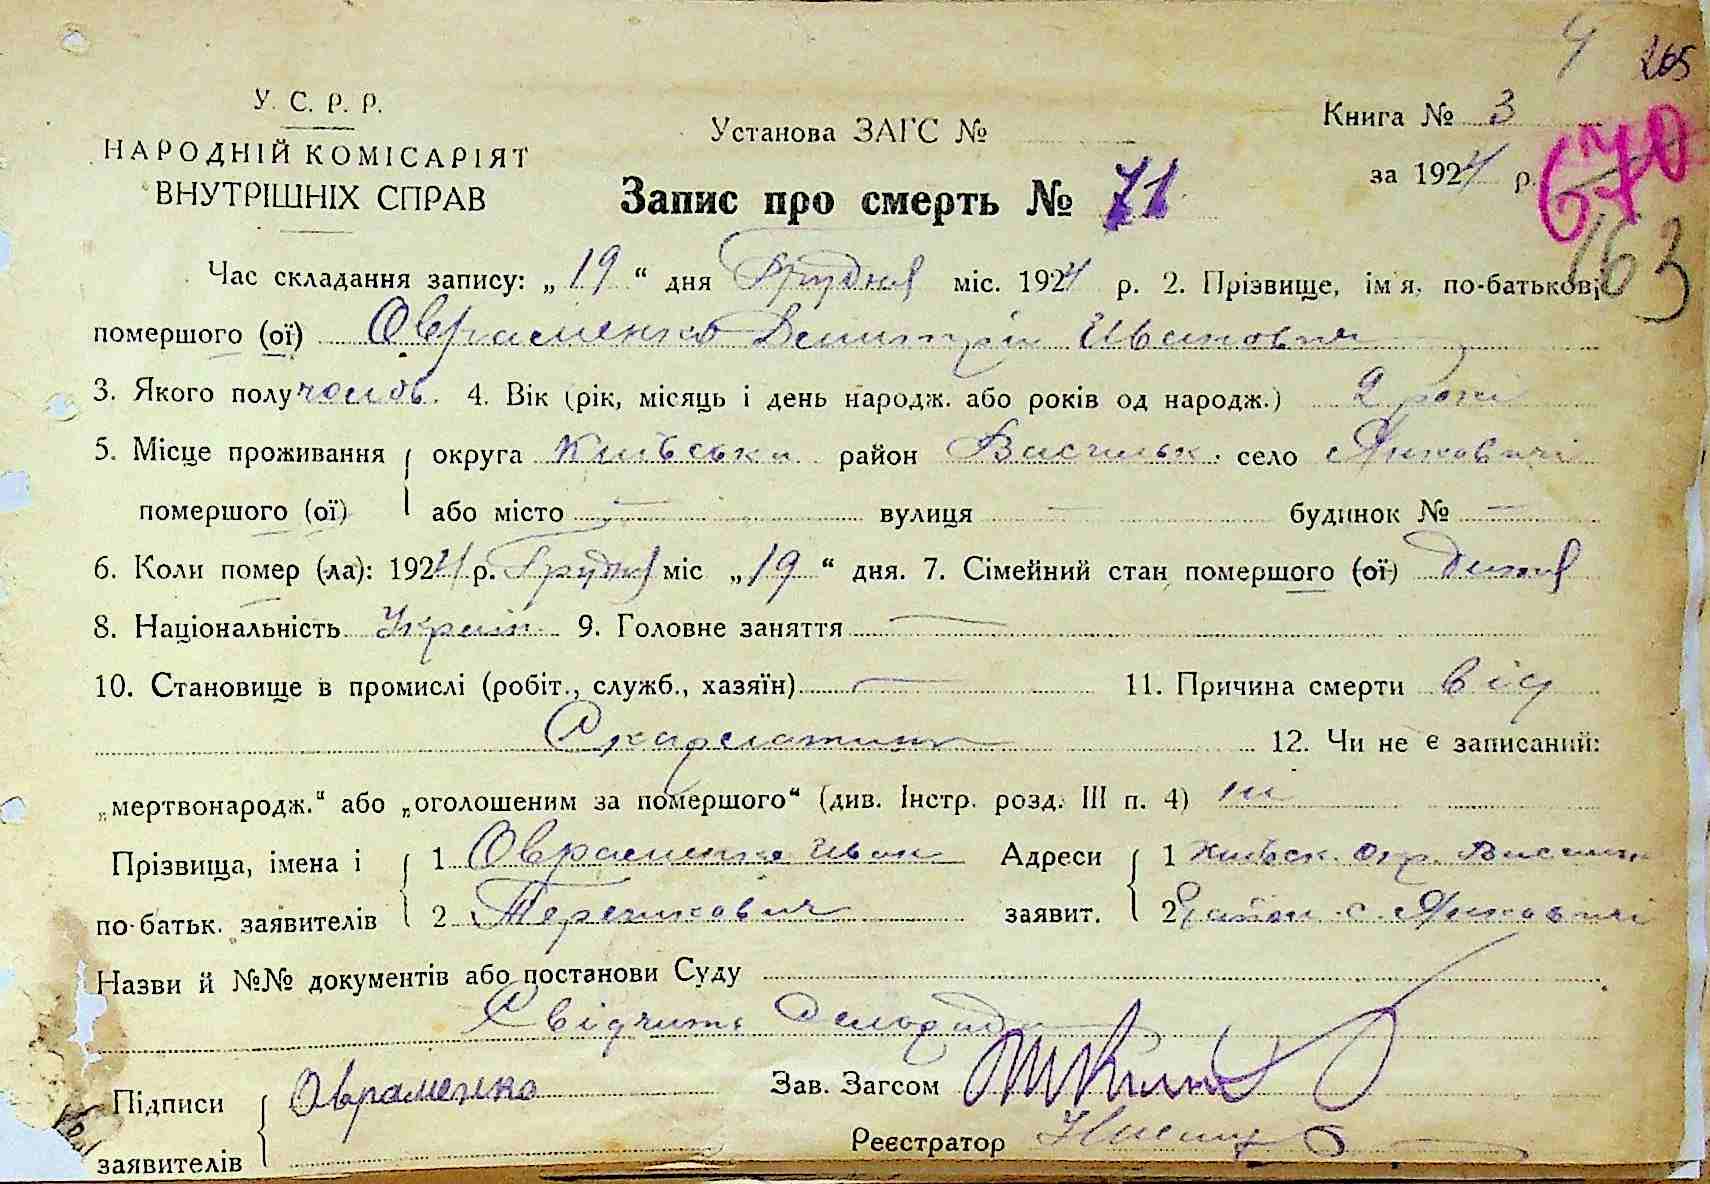 4 265
У. С. Р. Р.
НАРОДНІЙ КОМІСАРІЯТ
ВНУТРІШНІХ СПРАВ
Установа ЗАГС №
Запис про смерть № 71
Книга № 3
за 1924 р.
670
163
Час складання запису: „19“ дня Грудня міс. 1924 р. 2. Прізвище, ім'я, по-батькові
помершого (ої) Овраменко Дмитрій Иванович
3. Якого полу чолов. 4. Вік (рік, місяць і день народж. або років од народж.) 2 роки
5. Місце проживання помершого (ої) { округа Київська район Васильк. село Янковичі
або місто — вулиця — будинок № —
6. Коли помер (ла): 1924 р. Грудня міс „19“ дня. 7. Сімейний стан помершого (ої) Дитя
8. Національність Україн 9. Головне заняття —
10. Становище в промислі (робіт., служб., хазяїн) — 11. Причина смерти від
Скарлатини 12. Чи не є записаний:
„мертвонародж.“ або „оголошеним за помершого“ (див. Інстр. розд. III п. 4) ні
Прізвища, імена і по-батьк. заявителів { 1 Овраменко Иван Адреси заявит. { 1 Київск. Окр. Васильк
2 Терешкович 2 Район с. Янковичі
Назви й №№ документів або постанови Суду
Свідчить
Підписи заявителів { Овраменко Зав. Загсом
Реєстратор